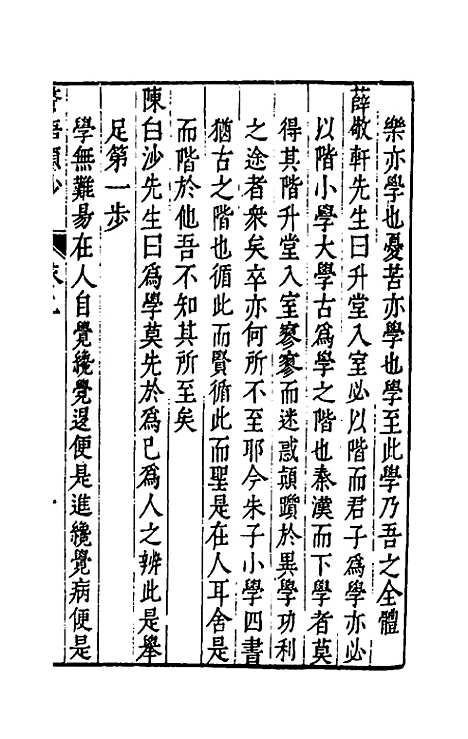 樂亦學也憂苦亦學也學至此學乃吾之全體
薛敬軒先生曰升堂入室必以階而君子為學亦必
以階小學大學古為學之階也秦漢而下學者莫
得其階升堂入室寥寥而迷惑顛躓於異學功利
之途者衆矣卒亦何所不至耶今朱子小學四書
猶古之階也循此而賢循此而聖是在人耳舍是
而階於他吾不知其所至矣
陳白沙先生曰為學莫先於為己為人之辨此是舉
足第一步
學無難易在人自覺纔覺退便是進纔覺病便是